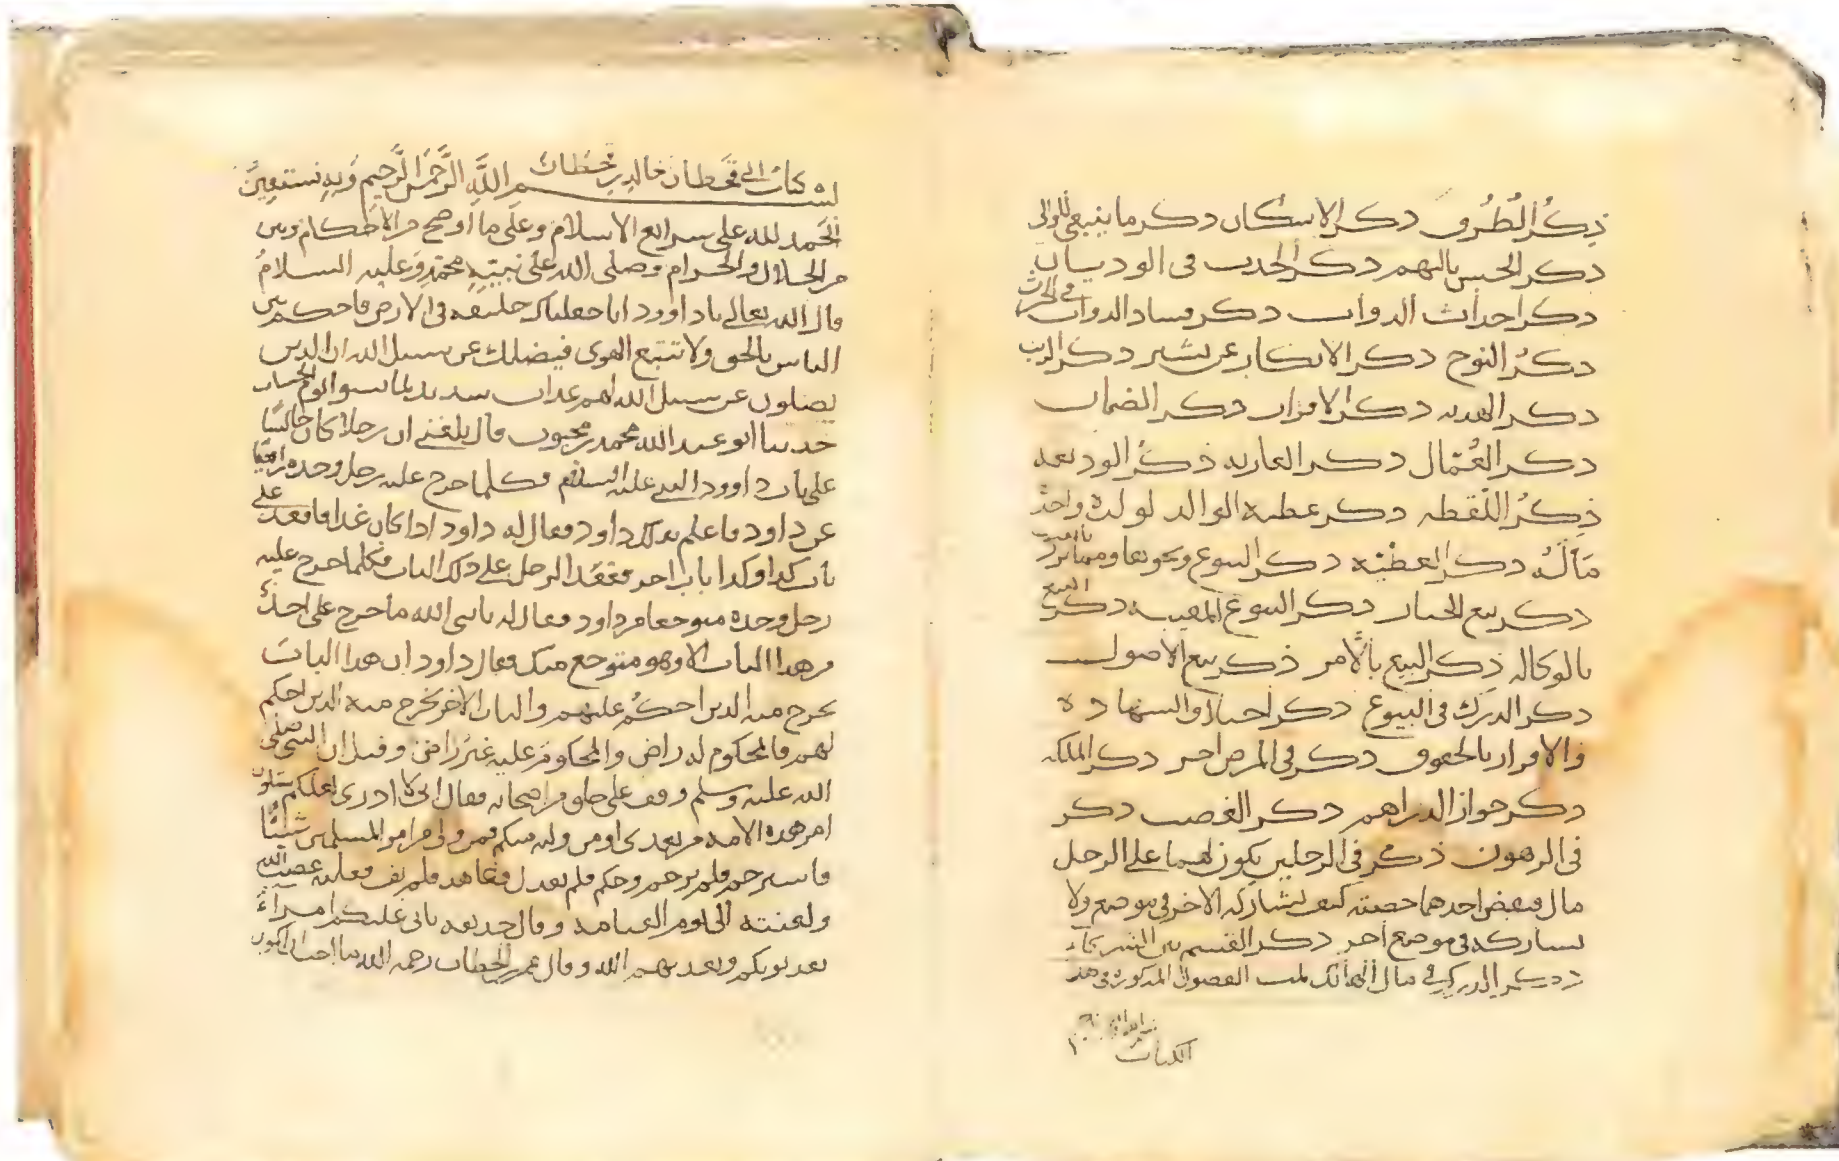 ذِكرُ الطُرُوق ذكر الاسكان ذكر ما ينبغي للوالى
ذكر الحبس بالتهم ذكر الحدث فى الوديان
ذكر احداث الدواب ذكر فساد الدواب فى الحرث
ذكرُ النوح ذكر الانكار عن بشير ذكر الريب
ذكر الهدية ذكر الاقرار ذكر الضمان
ذكر العُمّال ذكر العارية ذكرُ الوديعه
ذِكرُ اللّقطه ذكر عطية الوالد لولده واخذ
مَالَهُ ذكر العطيّه ذكر البيوع ونحوها ومما يرد بالعيب
ذكر بيع الخيار ذكر البيوع المعيبه ذكر البيع
بالوكاله ذكر البيع بالأمر ذكر بيع الاصول
ذكر الدرك فى البيوع ذكر اختلاف الشهادة
والاقرار بالحقوق ذكر فى المرض اخر ذكر الملكه
ذكر جواز الدراهم ذكر الغصب ذكر
فى الرهون ذكر فى الرجلين يكون لهما على الرجل
مال فيقبض احدهما حصته كيف يشاركه الاخر فى موضع ولا
يشاركه فى موضع اخر ذكر القسم بين الشركاء
ذكر الدرك فى مال الهالك تمت الفصول المذكورة فى هذا
الكتاب
كتاب ابى قحطان خالد بن قحطان
بسم اللَّهِ الرَّحمن الرَّحيم وَبِهِ نستعينُ
الحَمد لله على شرايع الاسلام وعلى ما اوضح من الاحكام وبين
من الحلال والحرام وصلى الله على نبيّه محمّدٍ وَعليه السلامُ
قال الله تعالى يا داوود انا جعلناك خليفه فى الارض فاحكم بين
الناس بالحق ولا تتبع الهوى فيضلك عن سبيل الله ان الذين
يضلون عن سبيل الله لهم عذاب شديد بما نسوا يوم الحساب
حدثنا ابو عبد الله محمد بن محبوب قال بلغنى ان رجلا كان جالسًا
على باب داوود النبى عليه السلام فكلما خرج عليه رجل وحده راضيا
عن داود فاعلم بذلك داود فقال له داود اذا كان غدا فاقعد على
باب كذا وكذا باب اخر فقعد الرجل على ذلك الباب فكلما خرج عليه
رجل وحده متوجعا من داود فقال له يا نبى الله ما خرج على احدٌ
من هذا الباب الا وهو متوجع منك فقال داود ان هذا البابَ
يخرج منه الذين احكُم عليهم والباب الاخر يخرج منه الذين احكم
لهم فالمحكوم له راض والمحكومَ عليه غير راض وقيل ان النبى صلى
الله عليه وسلم وقف على حلق من اصحابه فقال انى لا ادرى لعلكم ستلون
امر هذه الامه من بعدى او من وليه منكم فمن ولى من امر المسلمين شيئًا
فاسترحم فلم يرحم وحكم فلم يعدل وعاهد فلم يف فعليه غضب الله
ولعنته الى يوم القيامه وقال حذيفه ياتى عليكم امراءُ
يعذبونكم ويعذبهم الله وقال عمر بن الخطاب رحمه الله ما احب ان اكون